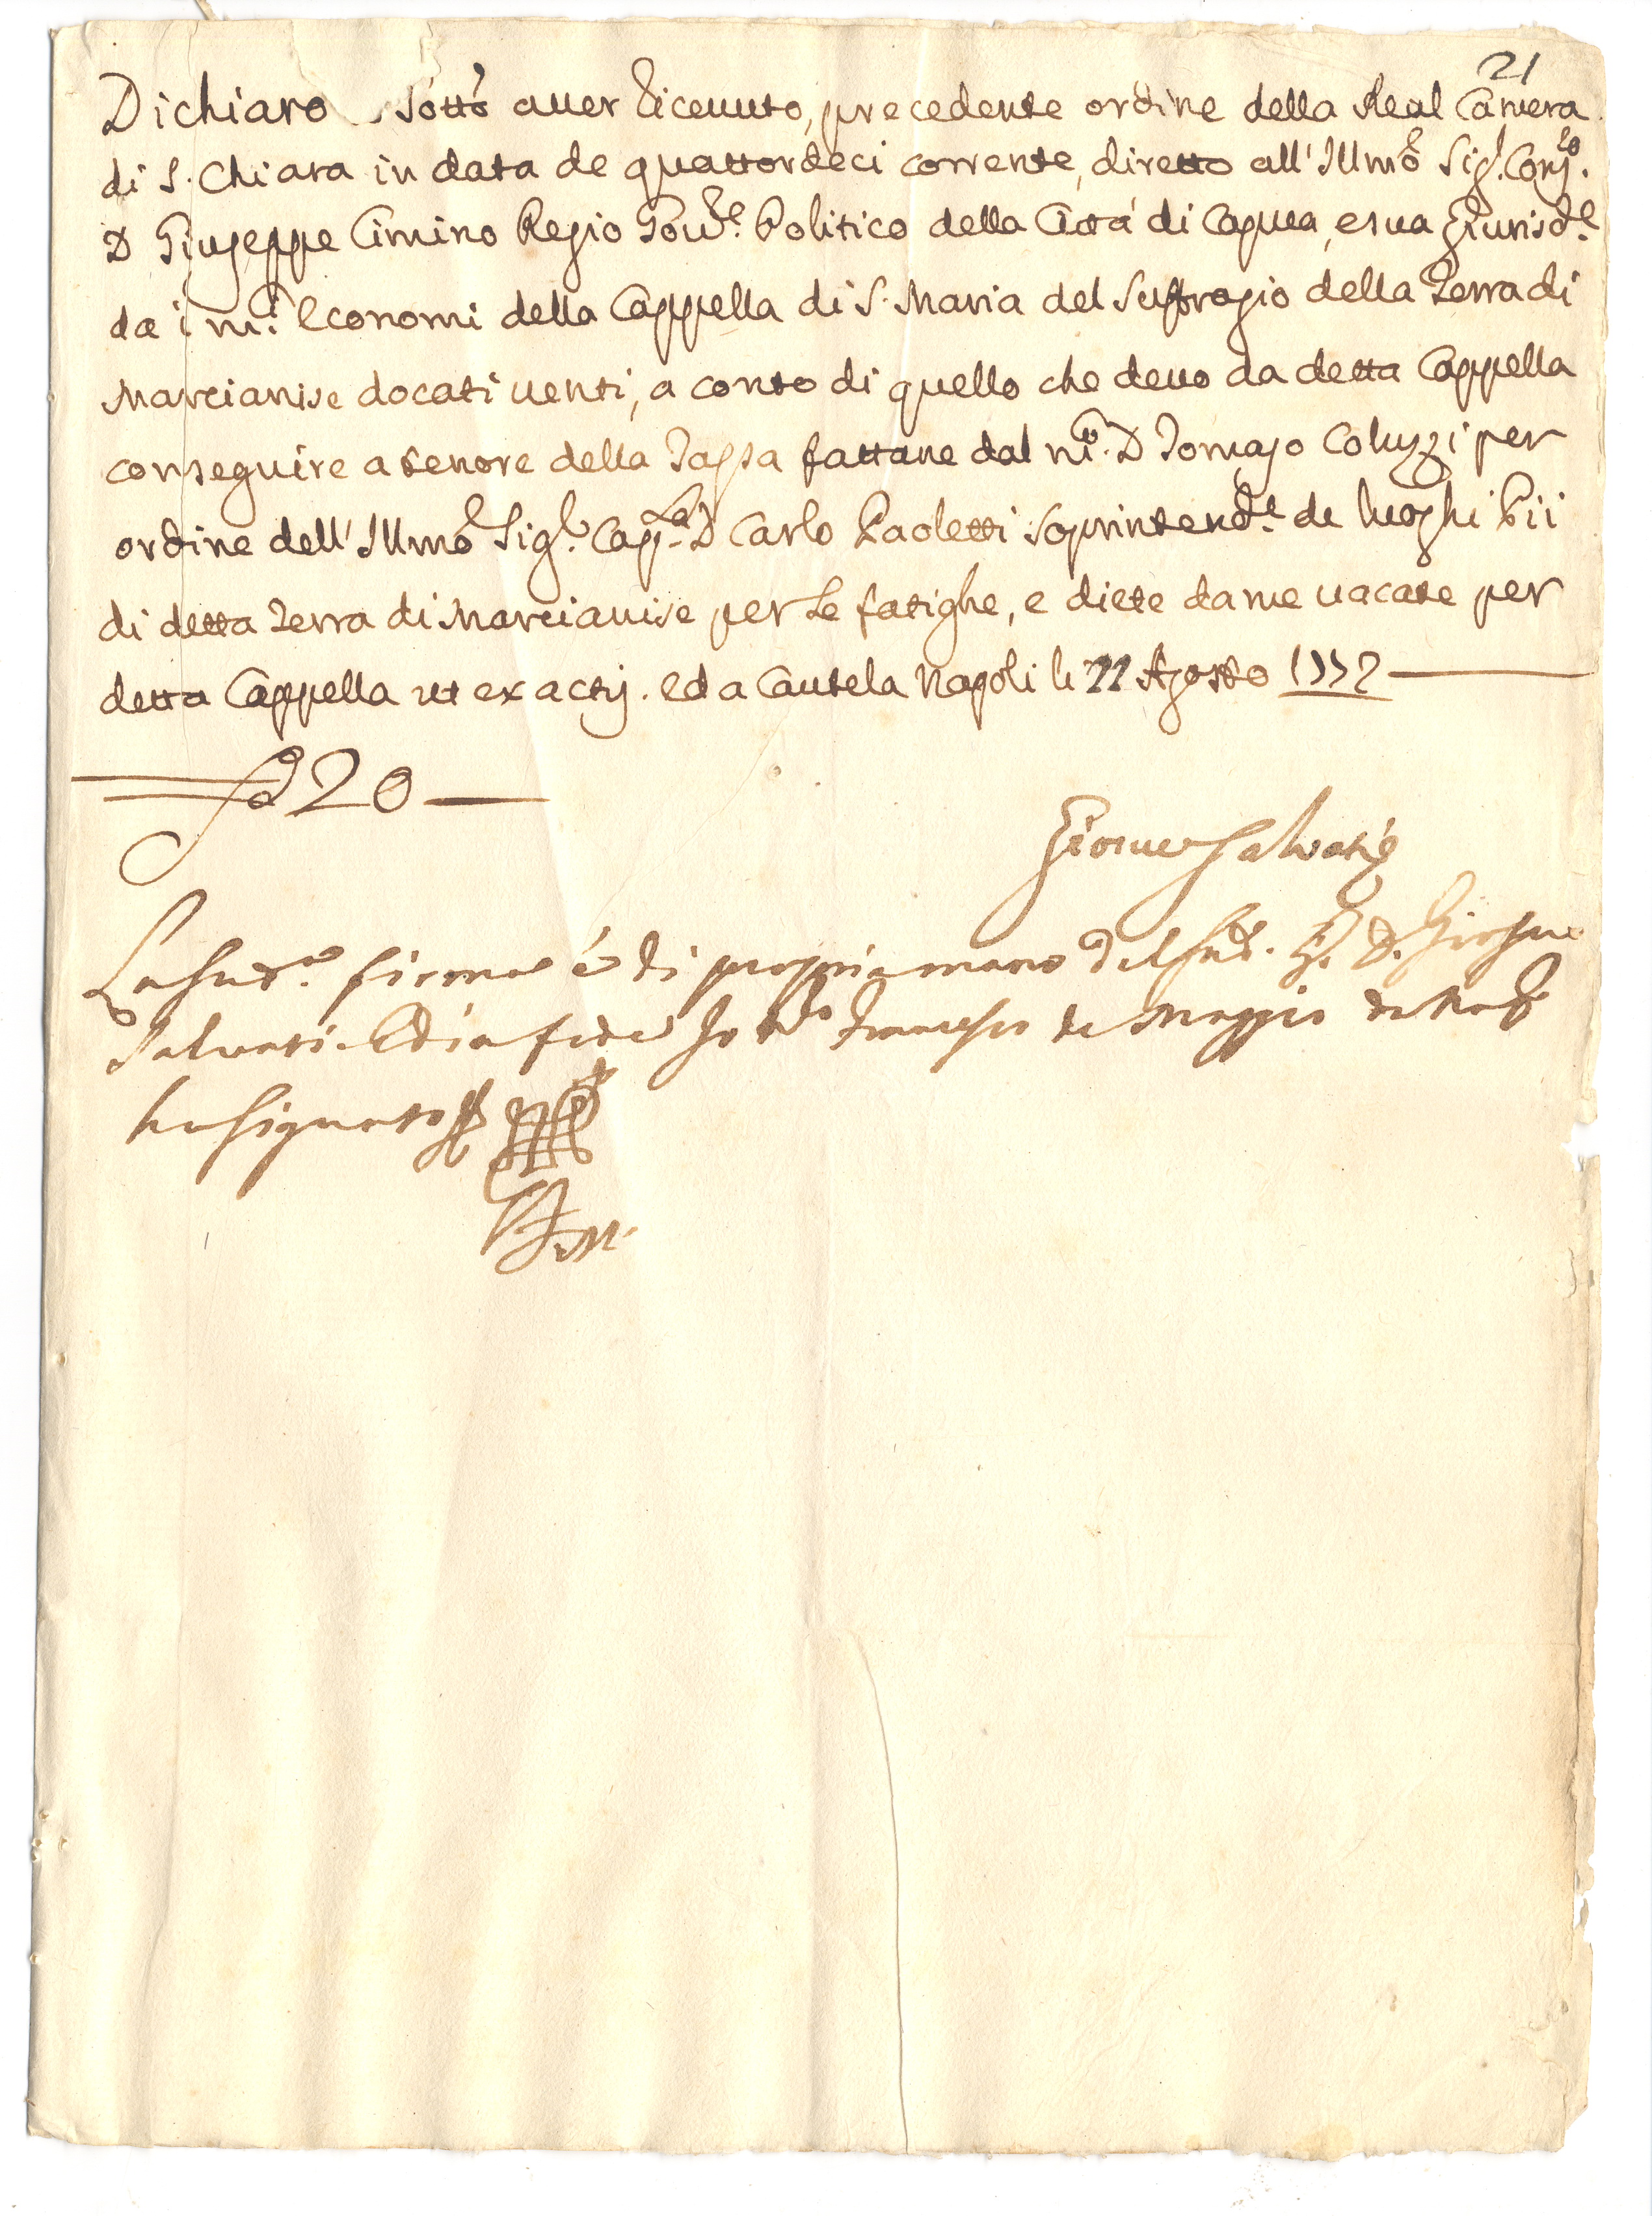 21
Dichiaro sottõ auer riceuuto, precedente ordine della Real Camera
di S. Chiara in data de quattordeci corrente, diretto all' Illmo Sig.r Cons.ro
D Giuseppe Cimino Regio Gov.re Politico della Città di Capua, e sua Giurisd.e
da i m.ci Economi della Cappella di S. Maria del Suffragio della Terra di
Marcianise docati uenti, a conto di quello che deuo da detta Cappella
conseguire a tenore della Tassa fattane dal m.co D Tomaso Coluzzi per
ordine dell' Illmo Sig.r Cap.no D Carlo Paoletti Soprintend.te de luoghi Pii
di detta Terra di Marcianise per le fatighe, e diete da me uacate per
detta Cappella ut ex actis. Ed a Cautela Napoli li 22 Agosto
20
Giosue Salvati
La sud.a firma è di propria mano del sud. D. Giosue
Salvati. Ed in fede Io N.r Francesco de Maggio de Nap.
ho signato